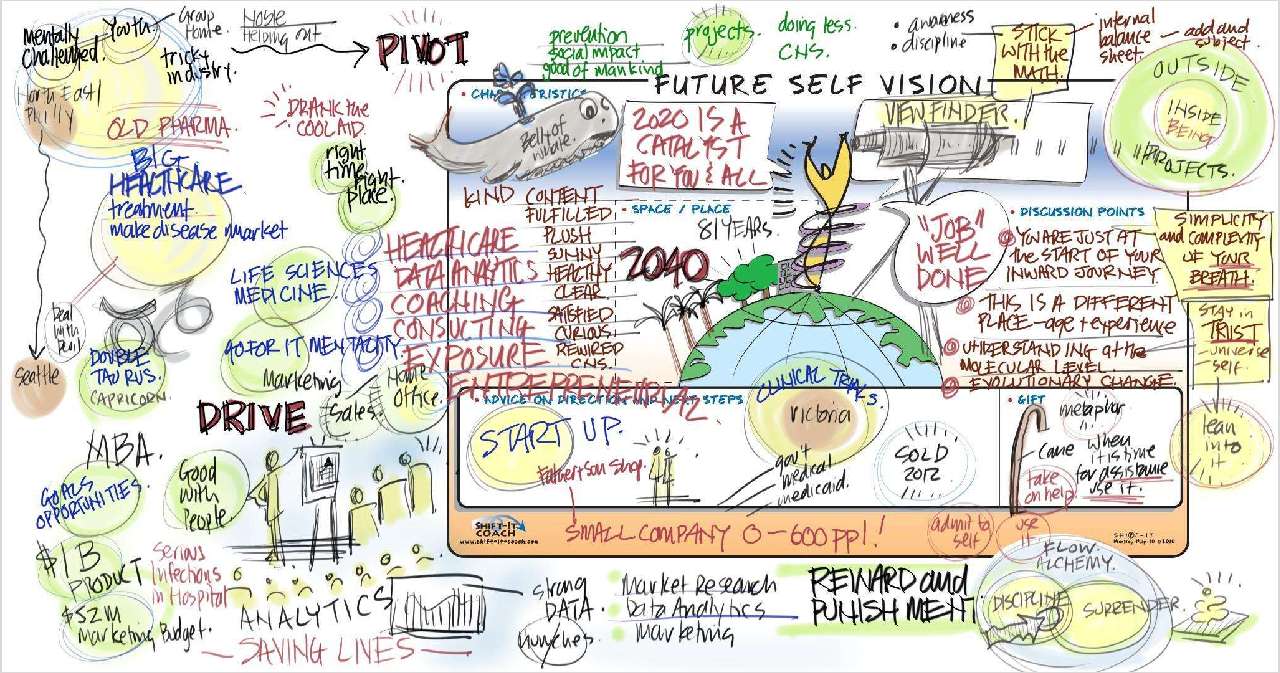 Mentally
Challenged.
Youth.
Group
Home.
Noble
Helping out
tricky
industry.
North East/
Philly
PIVOT
OLD PHARMA.
DRANK the
COOLAID.
BIG
HEALTHCARE
treatment.
make disease market
right
time,
right
place.
LIFE SCIENCES
MEDICINE.
GO FOR IT MENTALITY.
Marketing
Sales.
Home
Office.
Deal
with
bull
Seattle
DOUBLE
TAURUS.
CAPRICORN.
DRIVE
MBA.
GOALS
OPPORTUNITIES.
Good
with
People
$1B
PRODUCT
$52M
Marketing Budget.
Serious
Infections
in Hospital
ANALYTICS
SAVING LIVES
prevention
social impact
good of mankind
projects.
doing less.
CNS.
• awareness
• discipline
STICK
WITH the
MATH.
internal
balance
sheet.
add and
subject.
OUTSIDE
INSIDE
BEING
PROJECTS.
FUTURE SELF VISION
Belly of
whale.
2020 IS A
CATALYST
FOR YOU & ALL
VIEWFINDER.
KIND
CONTENT
FULFILLED.
PLUSH
SUNNY
HEALTHY
CLEAR
SATISFIED.
CURIOUS.
REWIRED
CNS.
HEALTHCARE
DATA ANAYTICS
COACHING
CONSULTING
EXPOSURE
ENTREPRENEURIAL
• SPACE / PLACE
81 YEARS.
2040
"JOB"
WELL
DONE
• DISCUSSION POINTS
YOU ARE JUST AT
the START OF YOUR
INWARD JOURNEY
THIS IS A DIFFERENT
PLACE - age + experience
UNDERSTANDING at the
MOLECULAR LEVEL.
EVOLUTIONARY CHANGE.
SIMPLICITY
and COMPLEXITY
OF YOUR
BREATH.
STAY in
TRUST
- universe
self.
lean
into
it
• ADVICE ON DIRECTION AND NEXT STEPS
START UP.
Father + son shop.
CLINICAL TRIALS.
Victoria
gov't
medical
medicaid.
SOLD
2012
• GIFT
metaphor
Cane
when
it is time
for assistance
use it.
take
on help
SHIFT-IT
COACH
www.shift-it-coach.com
SMALL COMPANY 0 - 600 ppl!
admit to
self
use
it
strong
DATA.
hunches.
• Market Research
• Data Analytics
• Marketing
REWARD and
PUNISHMENT
FLOW.
ALCHEMY.
DISCIPLINE
SURRENDER.